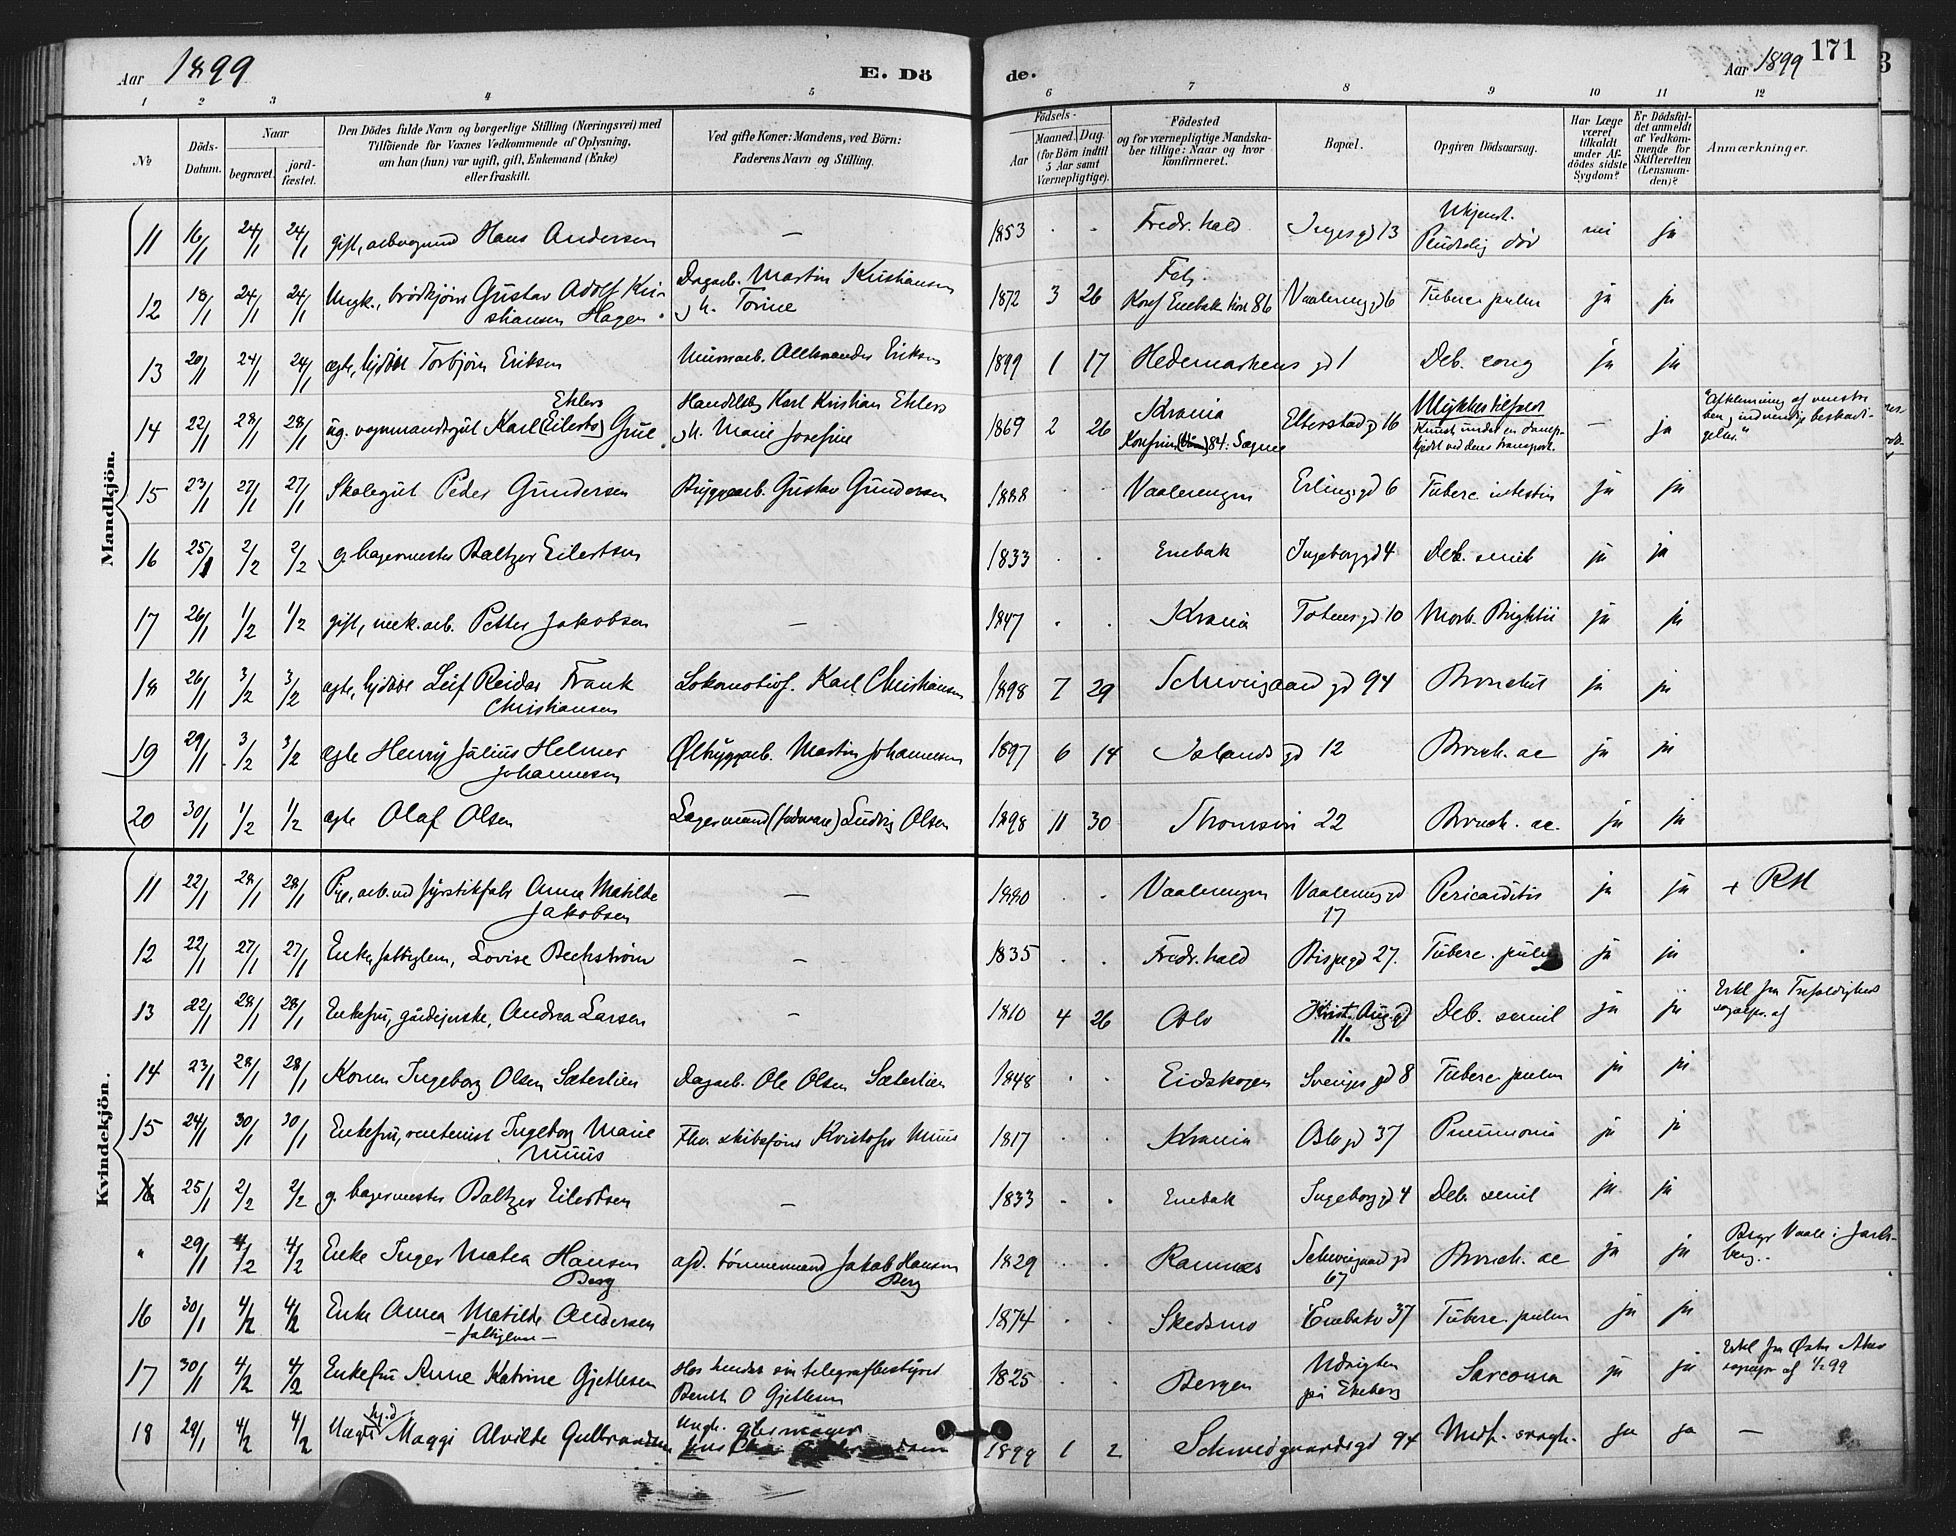 Aar 1899 E. Dö
de. Aar 1899 171
1 2 3 4 5 6 7 8 9 10 11 12
No
Döds-Datum.
Naar
begravet.
jordfæstet.
Den Dödes fulde Navn og borgerlige Stilling (Næringsvei) med
Tilföiende for Voxnes Vedkommende af Oplysning,
om han (hun) var ugift, gift, Enkemand (Enke)
eller fraskilt.
Ved gifte Koner: Mandens, ved Börn:
Faderens Navn og Stilling.
Födsels-
Aar
Maaned. Dag.
(for Börn indtil
5 Aar samt
Værnepligtige).
Födested
og for værnepligtige Mandska-
ber tillige: Naar og hvor
konfirmeret.
Bopæl.
Opgiven Dödsaarsag.
Har Læge
været
tilkaldt
under Af-
dödes sidste
Sygdom?
Er Dödsfal-
det anmeldt
af Vedkom-
mende for
Skifteretten
(Lensman-
den)?
Anmærkninger.
Mandkjön.
11 16/1 24/1 24/1 gift, Hans Andersen — 1853 . . Fredr.hald Ingesgd 13 Ukjendt. Pludselig død nei ja
12 18/1 24/1 24/1 Ungk., brødkjører Gustav Adolf Kri-
stiansen Hagen. Dagarb. Martin Kristiansen
og h. Torine 1872 3 26 Konf Enebak 86 Vaalerenggd 6 Tuberc. pulm ja ja
13 20/1 24/1 24/1 ægte, Torbjørn Eriksen Murarb. Eriksen 1899 1 17 Hedemarkens gd 1 Deb. cong ja ja
14 22/1 28/1 28/1 ug. vognmandsgut Karl (Eilerts) Ehlers Karl Kristian Ehlers
og h. Marie Josefine 1869 2 26 Krania Eberstad gd 16 Ulykkestilfælde — ja "Afklemning af venstre
ben, indvendige beskadi-
gelser."
15 23/1 27/1 27/1 Skolegut Peder Gundersen Bryggearb. Gustav Gundersen 1888 . . Vaalerengen Erlingsgd 6 Tuberc intestin ja ja
16 25/1 2/2 2/2 g. bagermester Baltzer Eilertsen 1833 . . Enebak Ingeborggd 4 Deb. senil ja ja
17 26/1 1/2 1/2 gift, mek. arb. Petter Jakobsen — 1847 . . Krania Totensgd 10 Morb. Brightii ja ja
18 26/1 3/2 3/2 ægte, Leif Reidar Frank
Christiansen Lokomotivf. Karl Christiansen 1898 7 29 Schweigaard gd 94 Bronchit ja ja
19 29/1 3/2 3/2 ægte Henry Julius Helmer
Johannesen Ølbryggarb. Martin Johannesen 1897 6 14 Islands gd 12 Bronch. ac ja ja
20 30/1 1/2 1/2 ægte Olaf Olsen Lagermand Ludvig Olsen 1898 11 30 22 Bronch. ac. ja ja
Kvindekjön.
11 22/1 28/1 28/1 Pige, arb. ved fyrstikfabr Anna Matilde
Jakobsen — 1880 . . Vaalerengen Vaalerenggd
17 Pericarditis ja ja + RM
12 22/1 27/1 27/1 Enke, fattiglem, Lovise Beckstrøm — 1835 Fredr.hald Bispegd 27. Tuberc. pulm ja ja
13 22/1 28/1 28/1 Enkefru, gårdeierske, Andrea Larsen — 1810 4 26 Oslo Krist. Aug. gd
11. Deb. senil ja ja Erkl fra Trefoldigheds
14 23/1 28/1 28/1 Konen Ingeborg Olsen Sæterlien Dagarb. Ole Olsen Sæterlien 1848 . . Eidskogen Sverigesgd 8 Tuberc pulm ja ja
15 24/1 30/1 30/1 Enkefru, rentenist Ingeborg Marie
Muus Fhv. skibsfører Kristofer Muus 1817 . . Krania Oslogd 37 Pneumonia ja ja
16 25/1 2/2 2/2 g. bagermester Baltzer Eilertsen — 1833 . . Enebak Ingeborggd 4 Deb. senil ja ja
" 29/1 4/2 4/2 Enke Inger Matea Hansen
Berg afd. tømmermand Jakob Hansen
Berg 1829 . . Ramnes Schweigaard gd
67 Bronch. ac ja ja Begr Vaale i Jarls-
berg.
16 30/1 4/2 4/2 Enke Anna Matilde Andersen
— fattiglem — 1874 . . Skedsmo Enebakv 37 Tuberc. pulm ja ja
17 30/1 4/2 4/2 Enkefru Anne Katrine Gjetlesen Hos hendes søn telegrafbestyrer
Bendt O Gjetlesen 1825 . . Bergen Udsigten
på Ekeberg Sarcoma ja ja Erkl fra Østre Aker
18 29/1 4/2 4/2 Maggi Alvilde Gulbrandsen Ungk. 1899 1 2 Schweigaardsgd 94 Medf. svagh. ja ja —